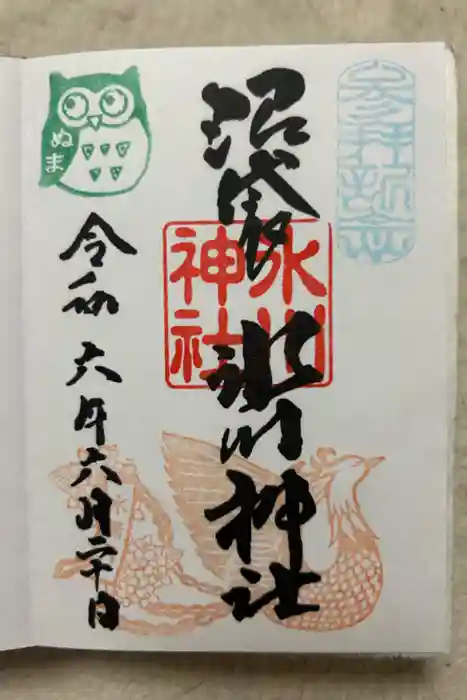 参拝記念
沼袋 氷川神社
氷川
神社
ぬま
令和六年六月二十日